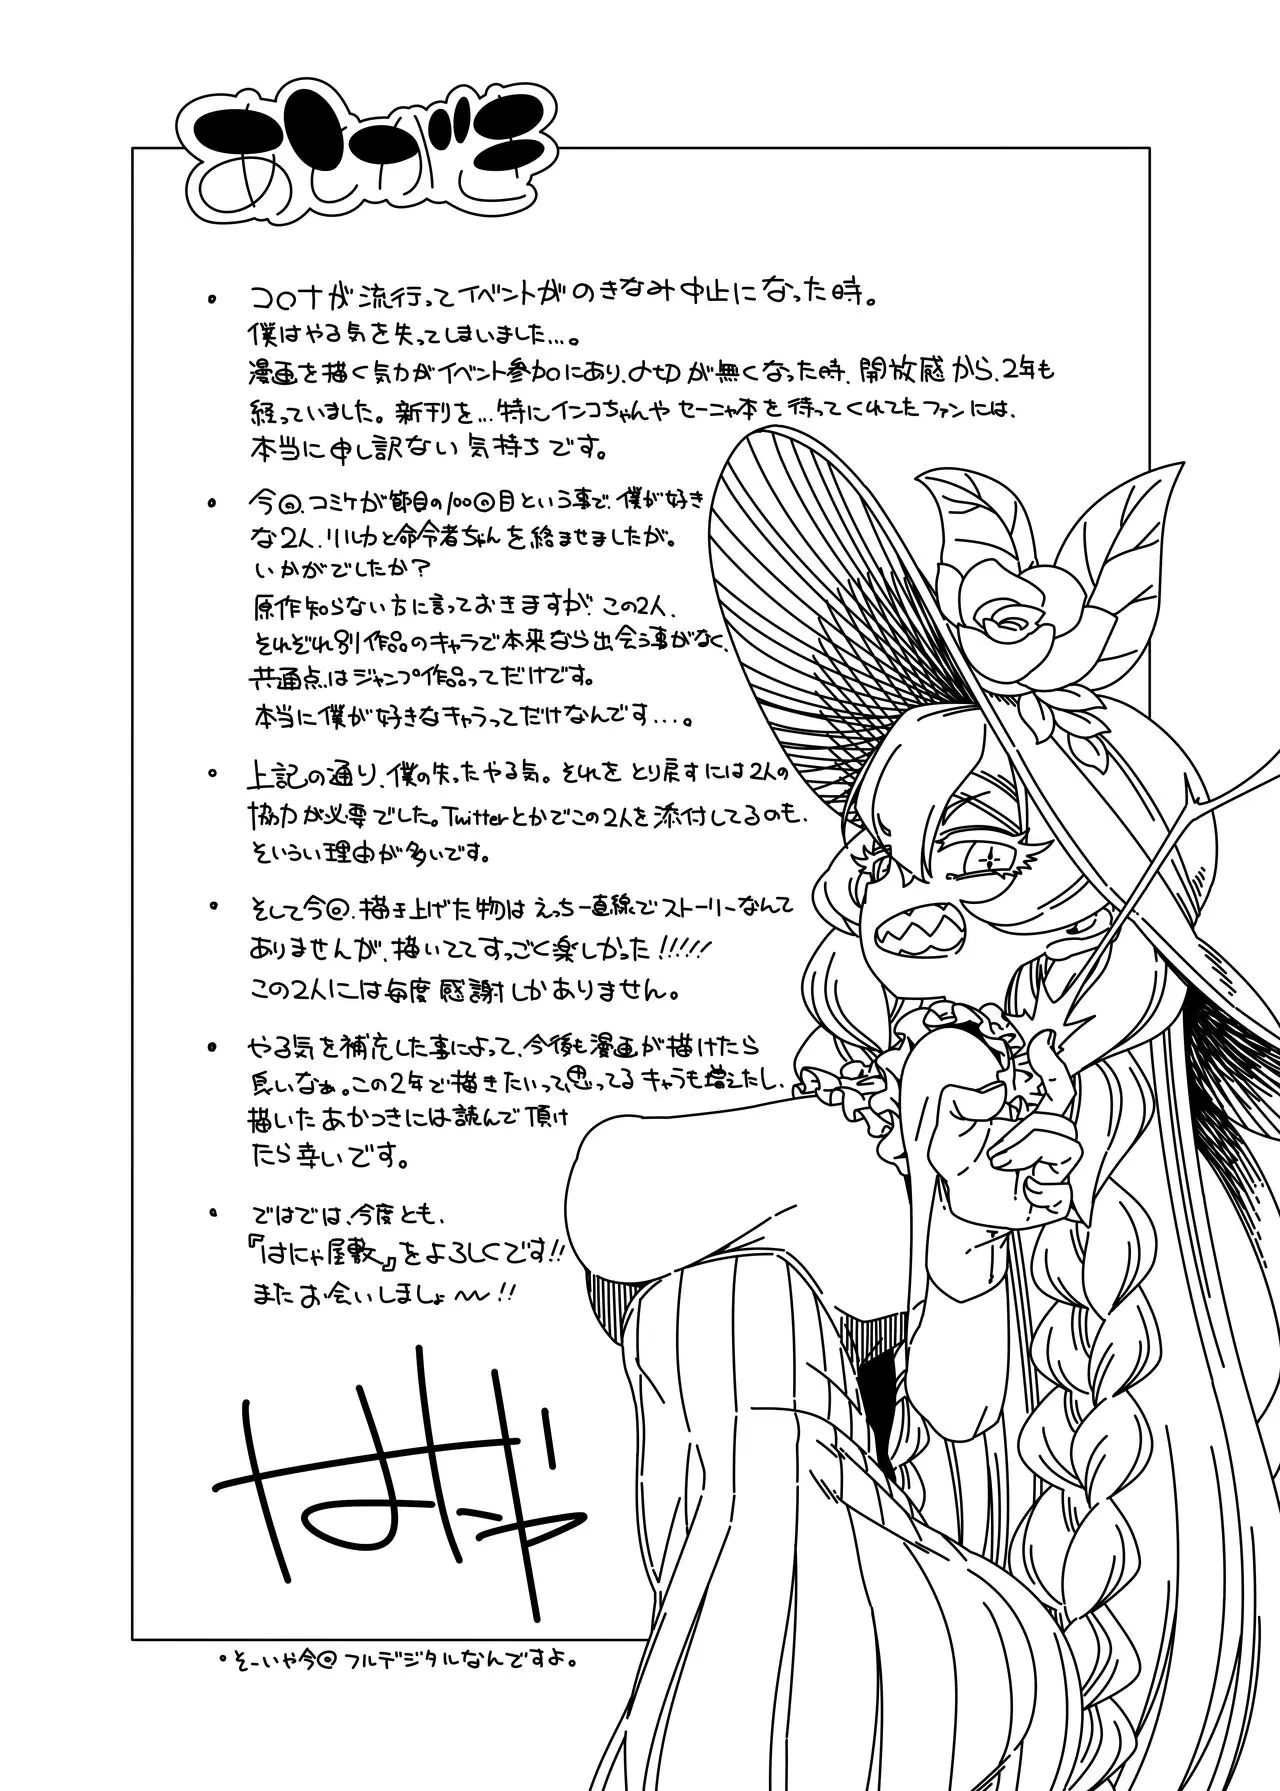 あしがき
・コロナが流行ってイベントがのきなみ中止になった時。
僕はやる気を失ってしまいました…。
漫画を描く気力がイベント参加にあり、〆切が無くなった時、開放感から、2年も
経っていました。新刊を…特にインコちゃんやセーニャ本を待ってくれてたファンには、
本当に申し訳ない気持ちです。
・今回、コミケが節目の100回目という事で、僕が好き
な2人、リルカと命令者ちゃんを絡ませましたが。
いかがでしたか？
原作知らない方に言っておきますが、この2人、
それぞれ別作品のキャラで本来なら出会う事がなく、
共通点はジャンプ作品ってだけです。
本当に僕が好きなキャラってだけなんです…。
・上記の通り、僕の失ったやる気。それをとり戻すには2人の
協力が必要でした。Twitterとかでこの2人を添付してるのも、
そういうい理由が多いです。
・そして今回、描き上げた物はえっち一直線でストーリーなんて
ありませんが、描いててすっごく楽しかった!!!!!
この2人には毎度感謝しかありません。
・やる気を補充した事によって、今後も漫画が描けたら
良いなぁ。この2年で描きたいって思ってるキャラも増えたし、
描いたあかつきには読んで頂け
たら幸いです。
・ではでは、今度とも、
『はにゃ屋敷』をよろしくです!!
またお会いしましょ〜!!
はにゃ
・そーいや今回フルデジタルなんですよ。